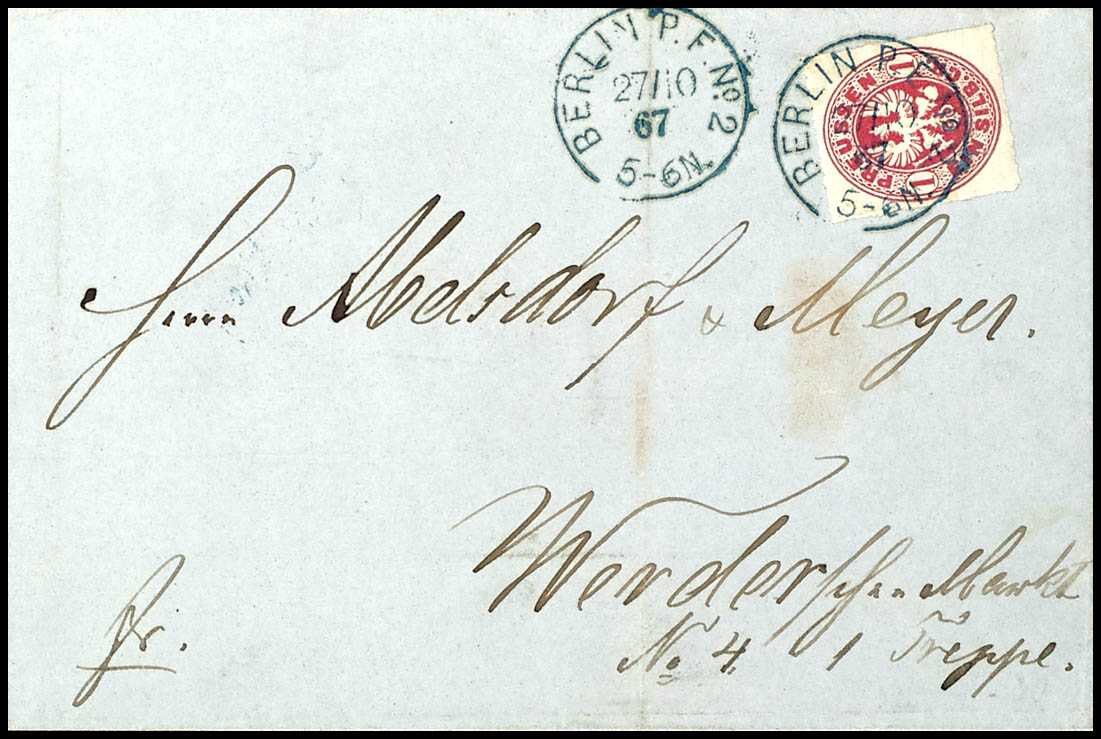 BERLIN P.E. No. 2
27/10
67
5-6N.
BERLIN P.E. No
5-6N.
PREUSSEN 1 SILB. GR. 1
Herrn Abelsdorf & Meyer.
Werderschen Markt
No 4. 1 Treppe.
fr.